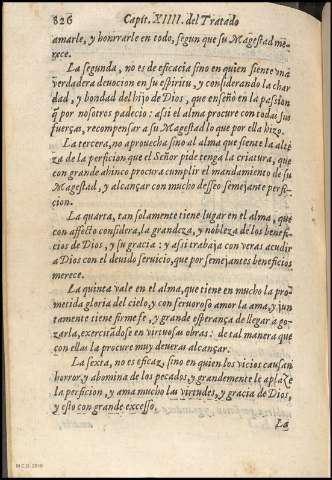 826 Capit. XIIII. del Tratado
amarle, y honrrarle en todo, segun que su Magestad me-
rece.
La segunda, no es de eficacia sino en quien siente vna
verdadera deuocion en su espiritu, y considerando la chari
dad, y bondad del hijo de Dios, que enseño en la passion
q̃ por nosotros padecio: assi el alma procure con todas sus
fuerças, recompensar a su Magestad lo que por ella hizo.
La tercera, no aprouecha sino al alma que siente la alte
za de la perficion que el Señor pide tenga la criatura, que
con grande ahinco procura cumplir el mandamiento de su
Magestad, y alcançar con mucho desseo semejante perfi-
cion.
La quarta, tan solamente tiene lugar en el alma, que
con affecto considera, la grandeza, y nobleza de los benefi-
cios de Dios, y su gracia: y assi trabaja con veras acudir
a Dios con el deuido seruicio, que por semejantes beneficios
merece.
La quinta vale en el alma, que tiene en mucho la pro-
metida gloria del cielo, y con feruoroso amor la ama, y jun
tamente tiene firme fe, y grande esperança de llegar a go-
zarla, exercitãdose en virtuosas obras: de tal manera que
con ellas la procure muy deueras alcançar.
La sexta, no es eficaz, sino en quien los vicios causan
horror, y abomina de los pecados, y grandemente le aplaze
la perficion, y ama mucho las virtudes, y gracia de Dios,
y esto con grande excesso.
La
M.C.D. 2018